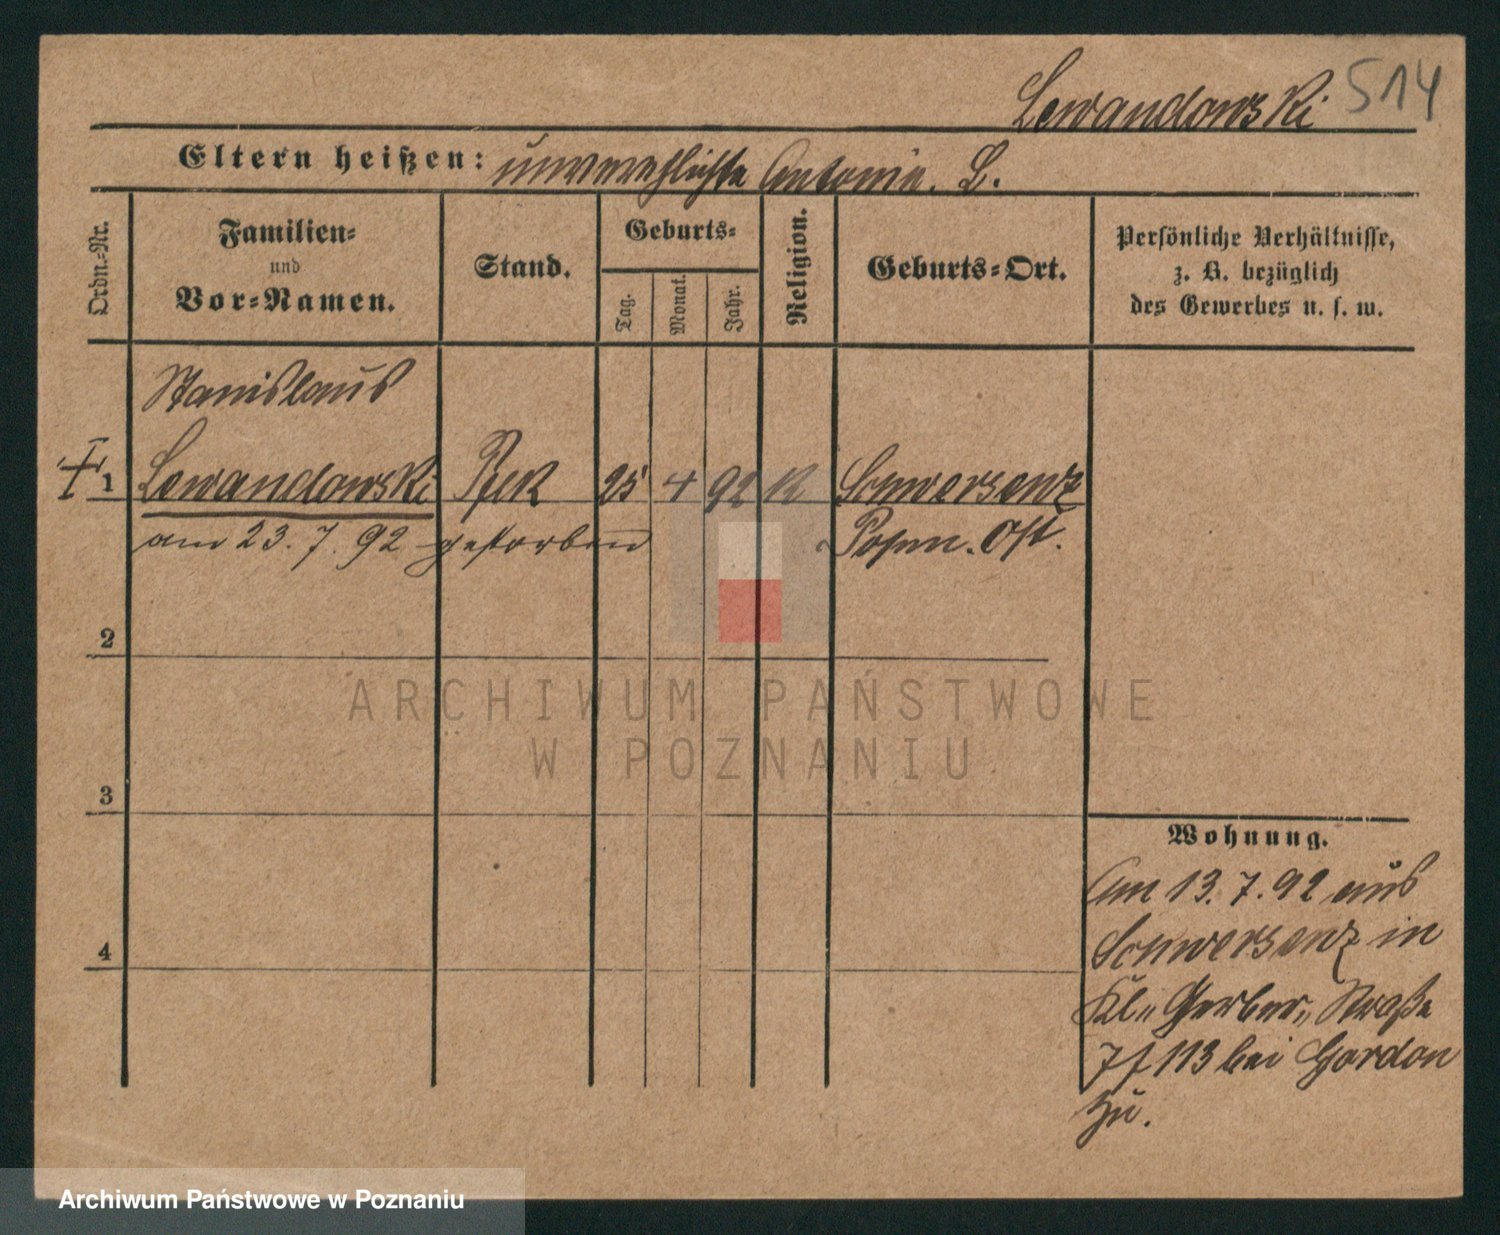 Lewandowski 514
Eltern heißen: unverehlichte Antonie. L.
Ordn.-Nr.
Familien-
und
Vor-Namen.
Stand.
Geburts-
Tag.
Monat.
Jahr.
Religion.
Geburts-Ort.
Persönliche Verhältnisse,
z. B. bezüglich
des Gewerbes u. s. w.
Stanislaus
1 Lewandowski 25 4 92 K Schwersenz
am 23. 7. 92 gestorben Posen. Ost.
2
3
4
Wohnung.
Am 13. 7. 92 aus
Schwersenz in
Kl. Gerber Straße
7/113 bei Gordon
zu.
ARCHIWUM PAŃSTWOWE
W POZNANIU
Archiwum Państwowe w Poznaniu